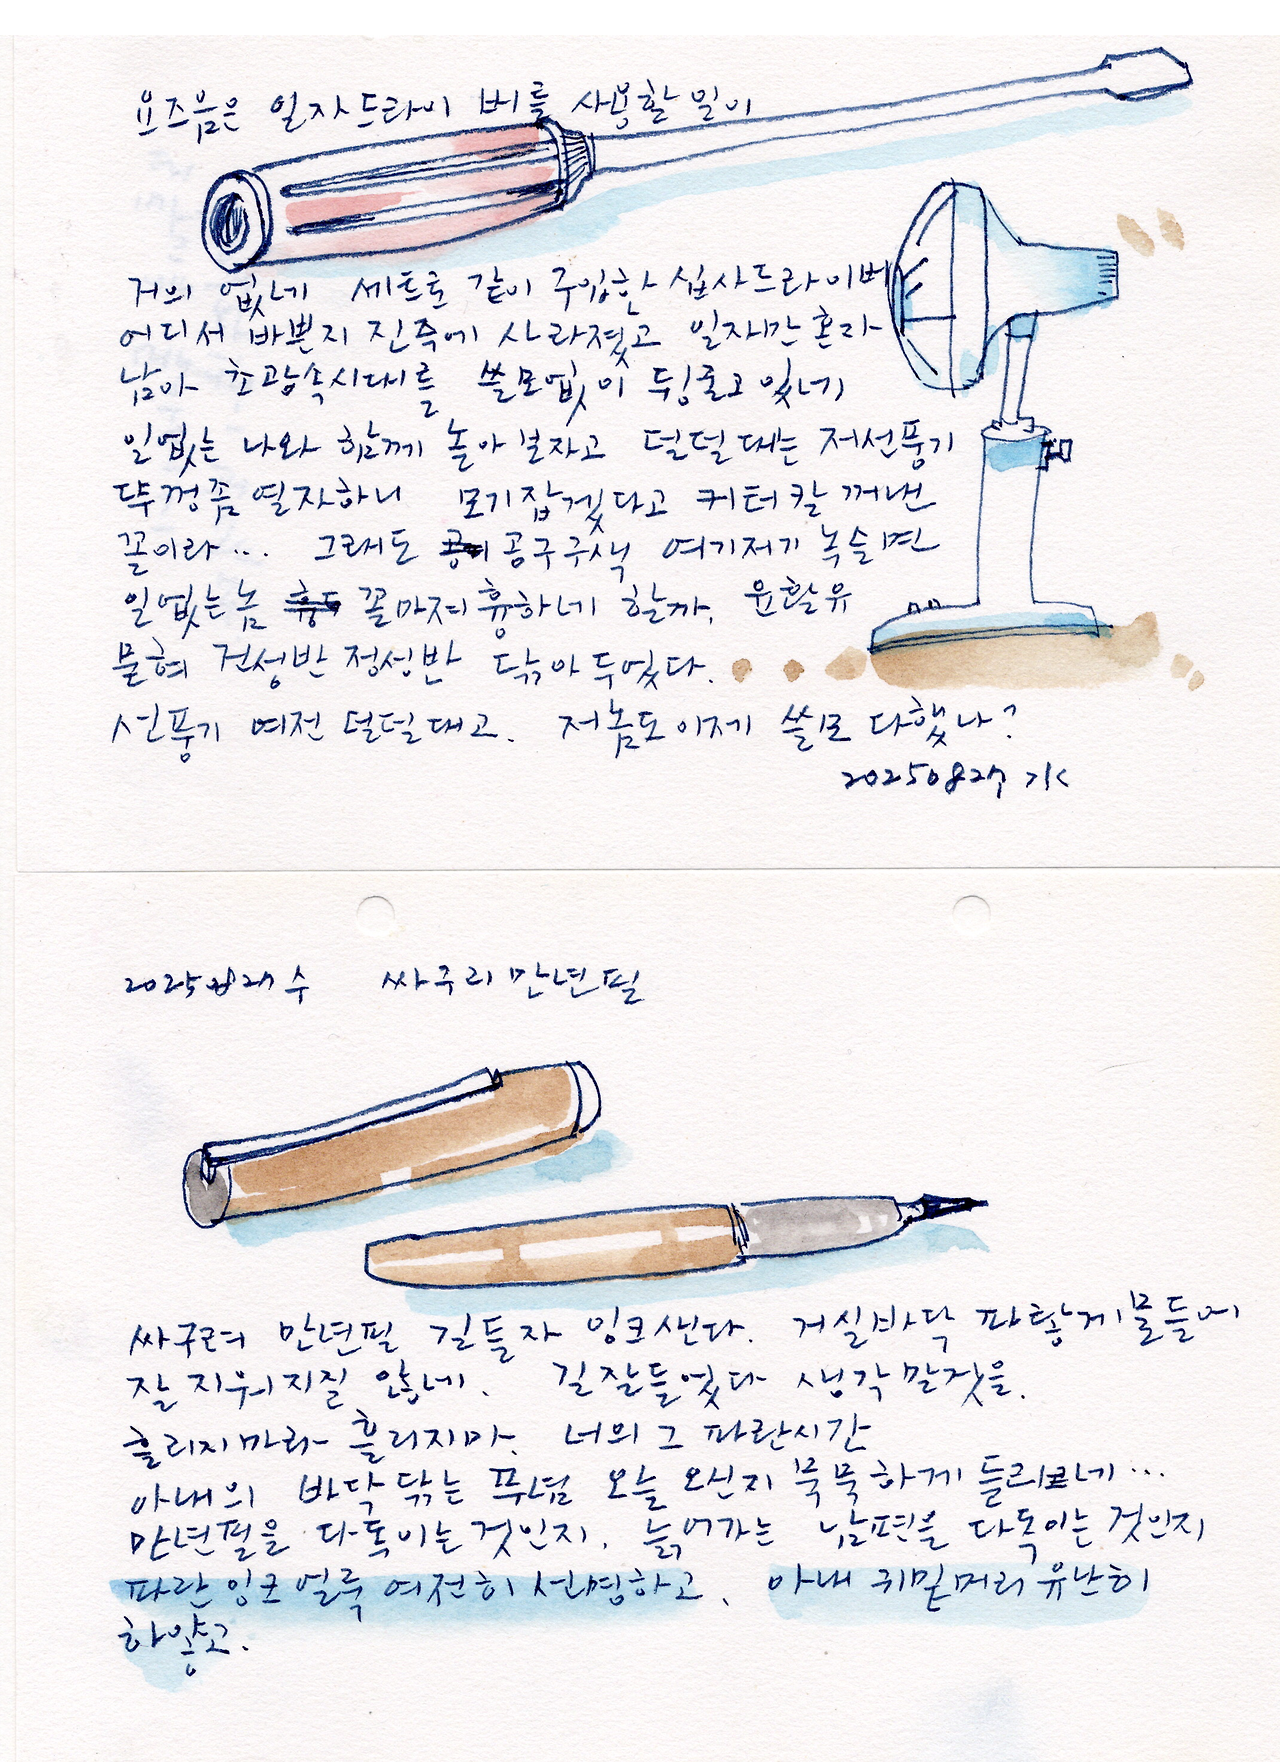 요즈음은 일자드라이버를 사용할 일이
거의 없네 세트로 같이 구입한 십사드라이버
어디서 바쁜지 진즉에 사라졌고 일자만 혼자
남아 초광속시대를 쓸모없이 뒹굴고 있네
일없는 나와 함께 놀아보자고 덜덜대는 저선풍기
뚜껑좀 열자하니 모기잡겠다고 커터칼 꺼낸
꼴이라... 그래도 공구구색 여기저기 녹슬면
일없는놈 꼴마저 흉하네 할까. 윤활유
묻혀 건성반 정성반 닦아 두었다.
선풍기 여전 덜덜대고. 저놈도 이제 쓸모 다했나?
20250827 기K
20250827 수 싸구리 만년필
싸구려 만년필 길들자 잉크샌다. 거실바닥 파랗게 물들어
잘 지워지질 않네. 길잘들었다 생각말것을.
흘리지마라 흘리지마. 너의 그 파란시간
아내의 바닥 닦는 푸념 오늘 오신지 묵묵하게 들리네...
만년필을 다독이는 것인지. 늙어가는 남편을 다독이는 것인지
파란 잉크 얼룩 여전히 선명하고. 아내 귀밑머리 유난히
하얗고.